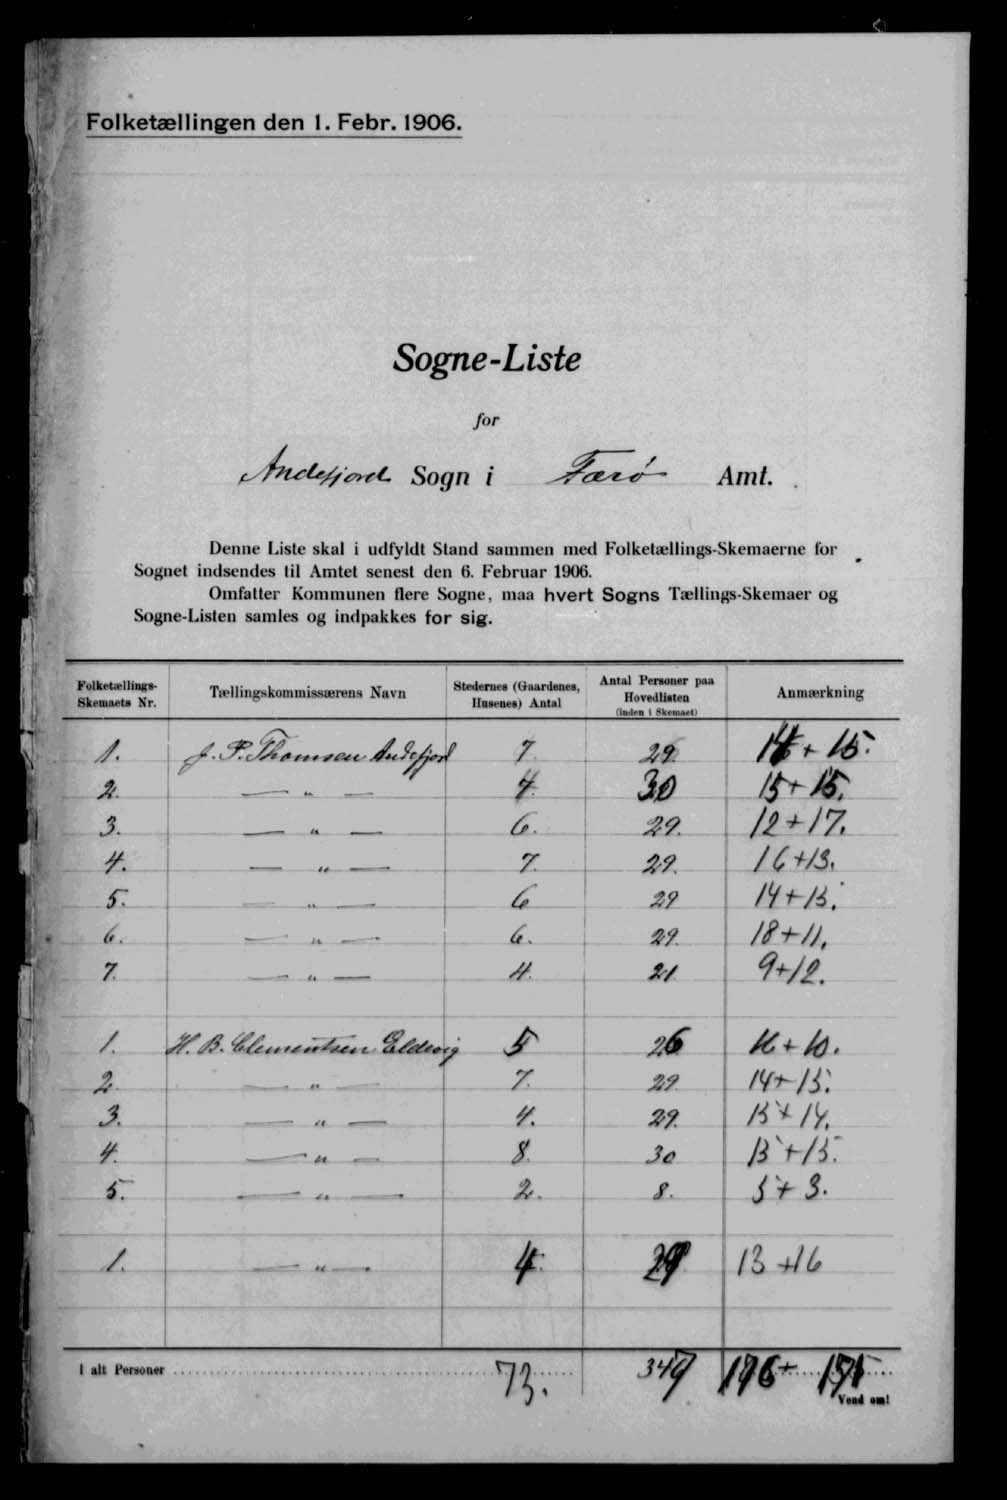 Folketællingen den 1. Febr. 1906.
Sogne-Liste
for
Andefjord Sogn i Færø Amt.
Denne Liste skal i udfyldt Stand sammen med Folketællings-Skemaerne for
Sognet indsendes til Amtet senest den 6. Februar 1906.
Omfatter Kommunen flere Sogne, maa hvert Sogns Tællings-Skemaer og
Sogne-Listen samles og indpakkes for sig.
Folketællings-Skemaets Nr. Tællingskommissærens Navn Stedernes (Gaardenes, Husenes) Antal Antal Personer paa Hovedlisten (inden i Skemaet) Anmærkning
1. J. P. Thomsen Andefjord 7 29. 14 + 15.
2. — " — 4. 30 15 + 15.
3. — " — 6. 29. 12 + 17.
4. — " — 7. 29. 16 + 13.
5. — " — 6 29 14 + 15.
6. — " — 6. 29. 18 + 11.
7. — " — 4. 21. 9 + 12.
1. H. B. Clementsen Eldevig 5 26 16 + 10.
2. — " — 7. 29 14 + 15.
3. — " — 4. 29. 15 + 14.
4. — " — 8. 30 15 + 15.
5. — " — 2. 8. 5 + 3.
1. — " — 4. 29 13 + 16
I alt Personer 73. 347 176 + 171
Vend om!